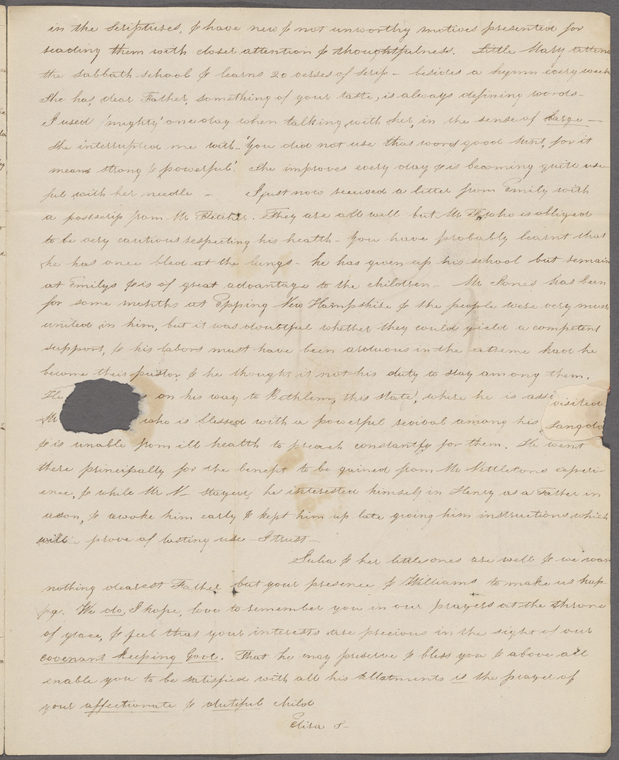 in the Scriptures, & have new & not unworthy motives presented for
reading them with closer attention & thoughtfulness. Little Mary attend
the sabbath school & learns 20 verses of Scrip - besides a hymn every week
She has, dear Father, something of your taste, is always defining words -
I used 'mighty' one day when talking with her, in the sense of large -
she interrupted me with 'You did not use that word good Aunt, for it
means strong & powerful'. She improves every day & is becoming quite use
ful with her needle - I just now received a letter from Emily with
a postscrip from Mr Fletcher. They are all well but Mr F, who is obliged
to be very cautious respecting his health - You have probably learnt that
he has once bled at the lungs - he has given up his school but remains
at Emilys & is of great advantage to the children - Mr Jones has been
for some months at Epping New Hampshire & the people were very much
united in him, but it was doubtful whether they could yield a competent
support, & his labors must have been arduous in the extreme had he
become their pastor, & he thought it not his duty to stay among them.
He on his way to Bethlem, this state, where he is assi visited
Mr who is blessed with a powerful revival among his
& is unable from ill health to preach constantly for them. He went
there principally for the benefit to be gained from Mr Nettletons experi-
ence, & while Mr N. stayed, he interested himself in Henry as a Father in
a son, & awoke him early & kept him up late giving him instructions which
will prove of lasting use I trust -
Julia & her little ones are well & we want
nothing dearest Father but your presence & Williams to make us hap
py. We do, I hope, love to remember you in our prayers at the throne
of grace, & feel that your interests are precious in the sight of our
covenant keeping God. That he may preserve & bless you & above all
enable you to be satisfied with all his allotments is the prayer of
your affectionate & dutiful child
Eliza S-